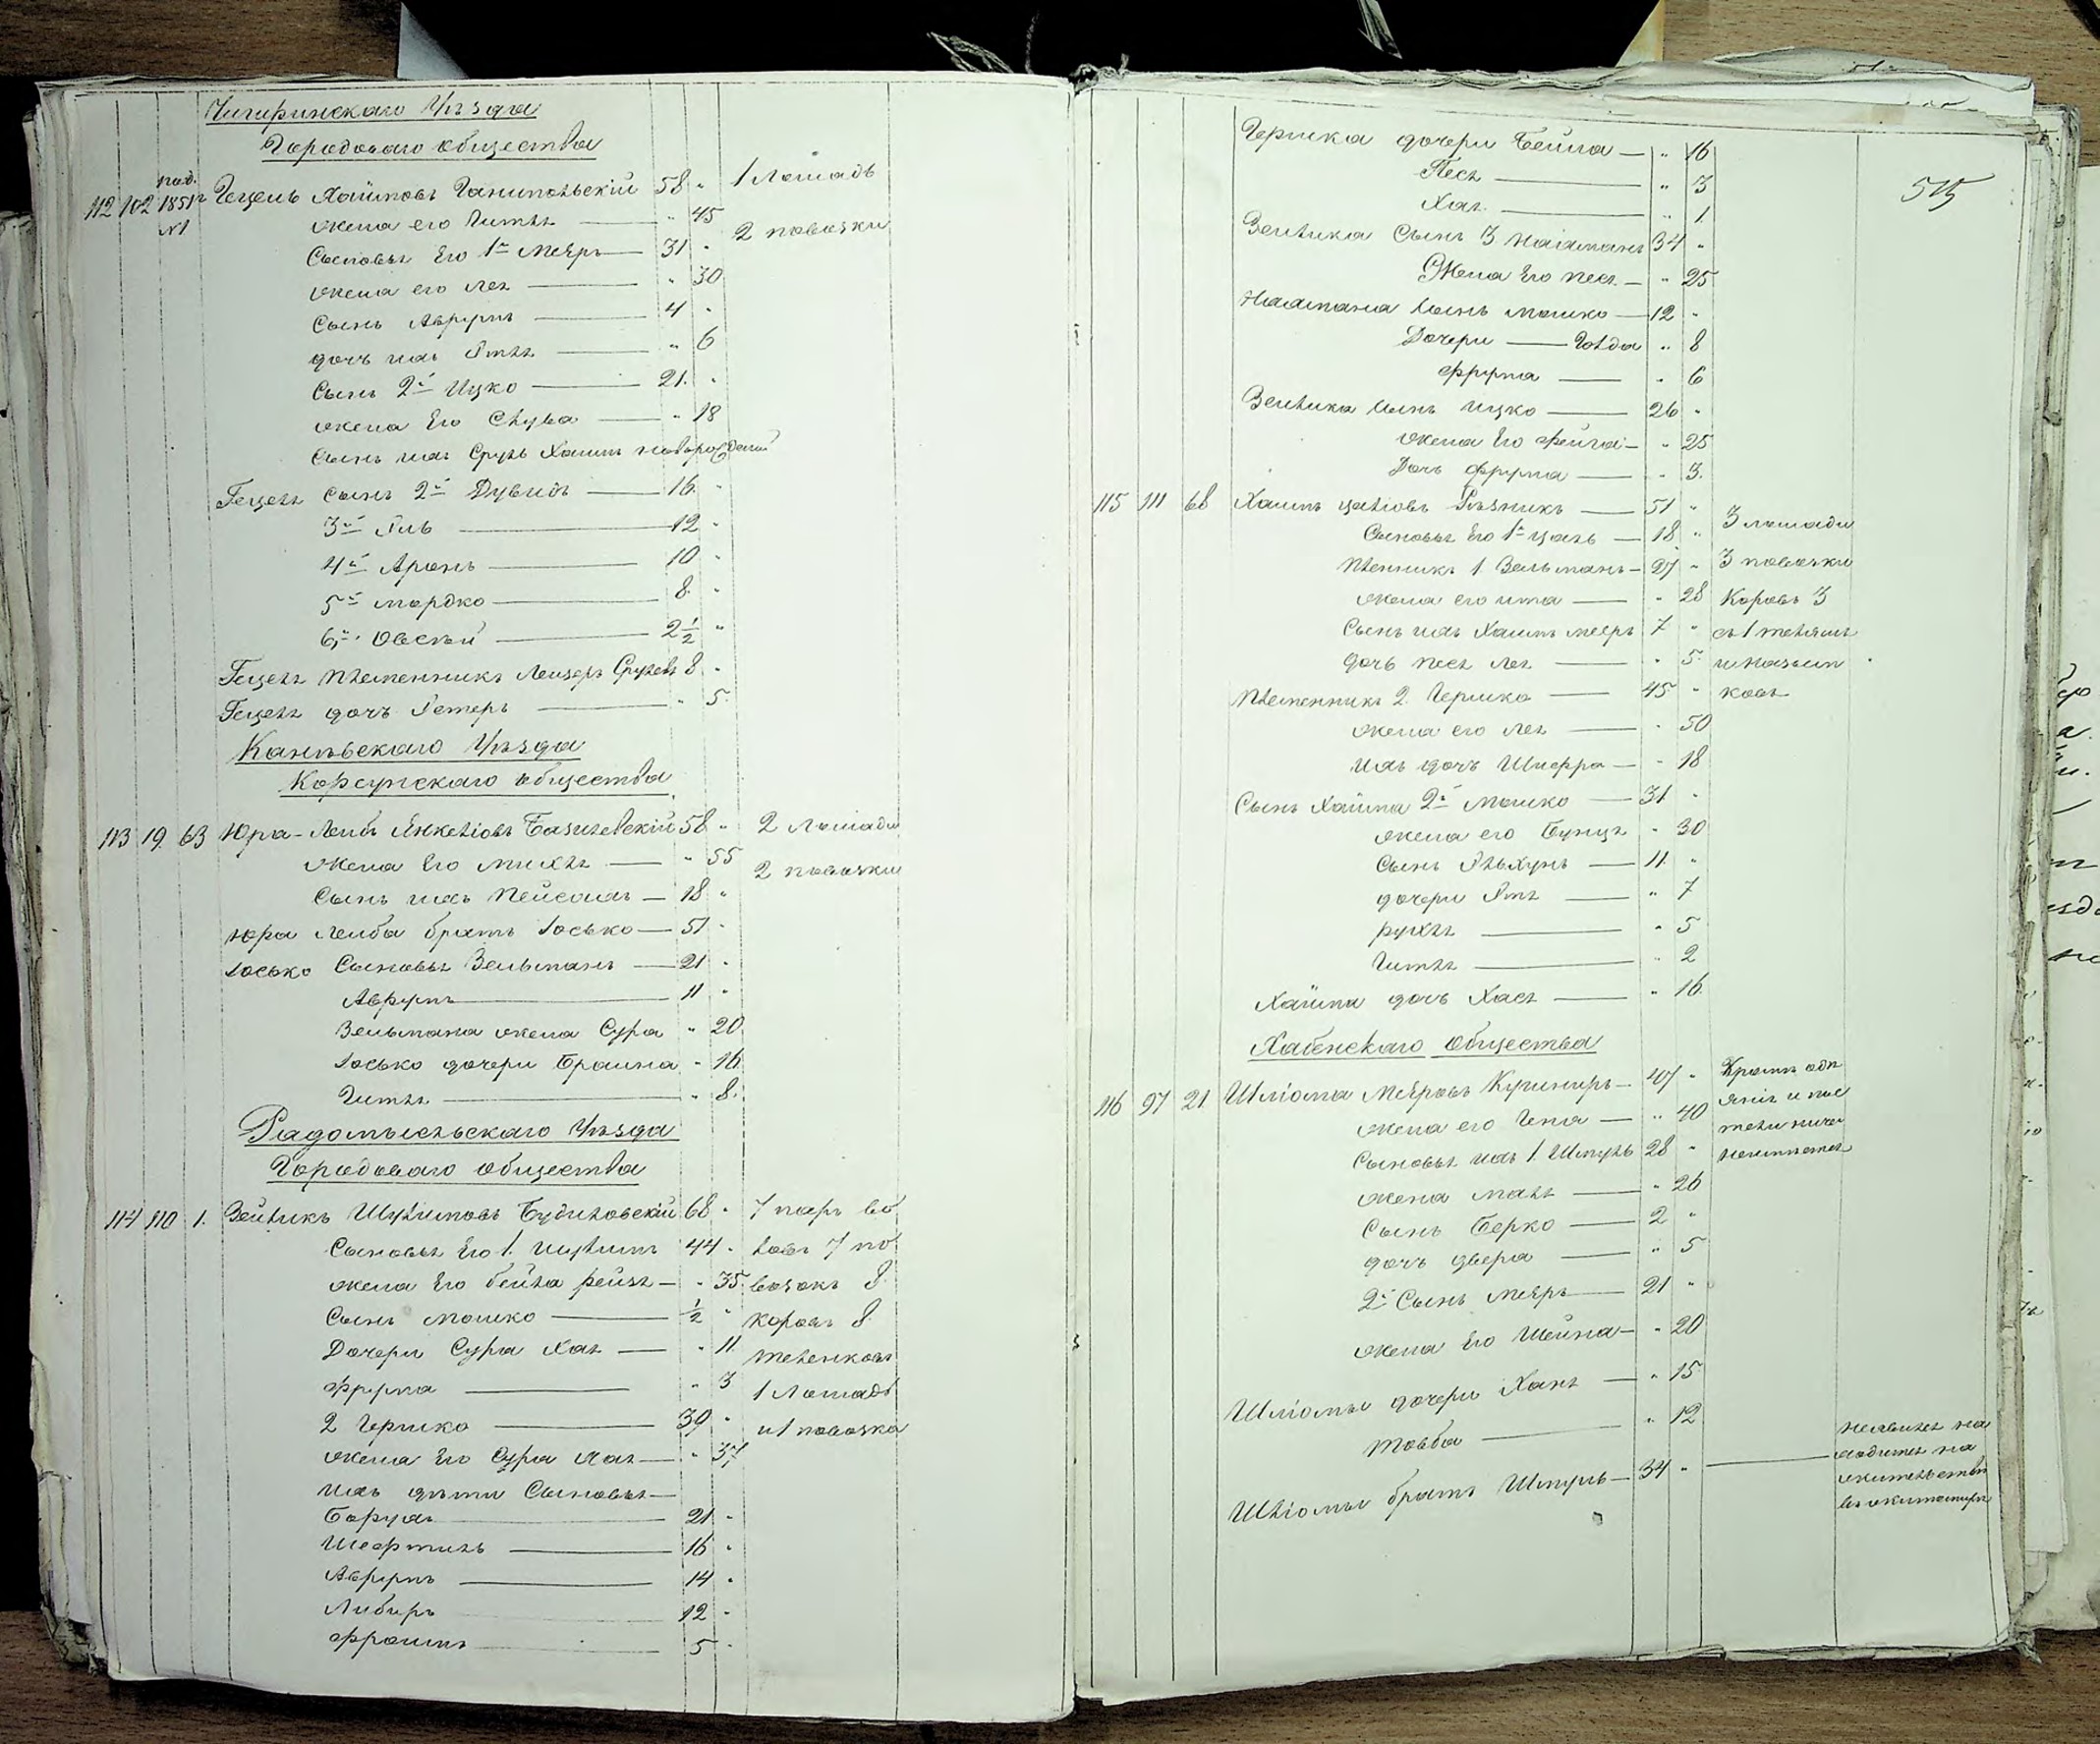 Чигиринскаго Уѣзда
Городоваго общества
112 102 1851 №1 Гецель Хаимовъ Ганипольскій 58 " 1 Лошадь
жена его Гитля " 45 2 повозки
Сыновья Его 1й Мееръ 31 "
жена его Лея " 30
Сынъ Аврумъ 4 "
дочъ ихъ Этля " 6
Сынъ 2й Ицко 21 "
жена Его Слува " 18
Сынъ ихъ Сруль Хаимъ новорожденый
Гецеля сынъ 2й Дувидъ 16 "
3й Эль 12 "
4й Аронъ 10 "
5й Мордко 8 "
6й Овсѣй 2½ "
Гецеля племенникъ Лейзеръ Срулевъ 8 "
Гецеля дочъ Эстеръ " 5
Каневскаго Уѣзда
Корсунскаго общества
113 19 63 Юра-Лейбъ Янкеліовъ Базилевскій 58 " 2 Лошади
жена Его Михля " 55 2 повозки
Сынъ ихъ Пейсахъ 18 "
Юра Лейба братъ Іосько 51 "
Іосько Сыновья Зельманъ 21 "
Аврумъ 11 "
Зельмана жена Сура " 20
Іосько дочери Браина " 16
Гитля " 8
Радомысльскаго Уѣзда
Городоваго общества
114 110 1 Зейликъ Шулимовъ Будиловскій 68 " 7 паръ во
Сыновья Его 1. Шулимъ 44 " ловъ 7 по
жена Его бейла рейзя " 35 возокъ 8
Сынъ Мошко ½ " коровъ 8
Дочери Сура Хая " 11 теленковъ
Фрума " 3 1 Лошадь
2 Гершко 39 " и 1 повозка
жена Его Сура Хая " 37
ихъ дѣти Сыновья
Борухъ 21 "
Шефтиль 16 "
Аврумъ 14 "
Либеръ 12 "
Фроимъ 5 "
515
Гершка дочери Бейла " 16
Песя " 3
Хая " 1
Зейлика Сынъ 3 Наатманъ 34 "
Жена Его Песя " 25
Наатмана сынъ Мошко 12 "
Дочери Голда " 8
Фрума " 6
Зейлика сынъ Ицко 26 "
жена Его Фейга " 25
Дочъ Фрума " 3
115 111 68 Хаимъ Цаліовъ Рѣзникъ 51 " 3 лошади
Сыновья Его 1й Цаль 18 "
Пленникъ 1. Зельманъ 27 " 3 повозки
жена его ита " 28 Коровъ 3
Сынъ ихъ Хаимъ Мееръ 7 " съ 1 телятъ
дочъ Песя Лея " 5
Племенникъ 2. Гершко 45 "
жена его Лея " 50
ихъ дочъ Шифра " 18
Сынъ Хаима 2й Мошко 31 "
жена его Бунця " 30
Сынъ Эльхунъ 11 "
дочери Этя " 7
рухля " 5
Гитля " 2
Хаима дочъ Хася " 16
Хабенскаго общества
116 97 21 Шліома Меѣровъ Кушниръ 47 " Кромѣ одѣ
жена его Гена " 40 янія и пос
Сыновья ихъ 1. Шмуль 28 " тели ниче
жена Маля " 26 неимѣетъ
Сынъ Берко 2 "
дочъ двера " 5
2й Сынъ Меѣръ 21 "
жена Его Шейна " 20
Шліомы дочери Ханя " 15
Товба " 12
Шліомы братъ Шмуль 34 " неявился на
ходится на
жительствѣ
въ житомирѣ